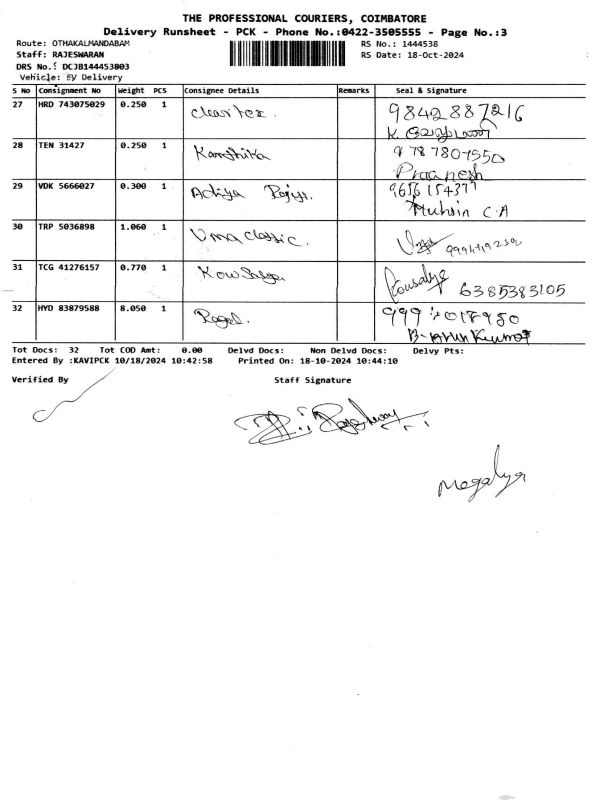 THE PROFESSIONAL COURIERS, COIMBATORE
Delivery Runsheet - PCK - Phone No.:0422-3505555 - Page No.:3
Route: OTHAKALMANDABAM RS No.: 1444538
Staff: RAJESWARAN RS Date: 18-Oct-2024
DRS No.: DCJB144453803
Vehicle: EV Delivery
S No Consignment No Weight PCS Consignee Details Remarks Seal & Signature
27 HRD 743075029 0.250 1 cleartex. 9842887216
K.
28 TEN 31427 0.250 1 Kanshika 9787807550
Praanesh
29 VDK 5666027 0.300 1 Aditya 9656154377
Muhsin C.A
30 TRP 5036898 1.060 1 Uma classic.
31 TCG 41276157 0.770 1 Kousalya 6385383105
32 HYD 83879588 8.050 1 B. Arun Kumar
Tot Docs: 32 Tot COD Amt: 0.00 Delvd Docs: Non Delvd Docs: Delvy Pts:
Entered By :KAVIPCK 10/18/2024 10:42:58 Printed On: 18-10-2024 10:44:10
Verified By Staff Signature
Megalya